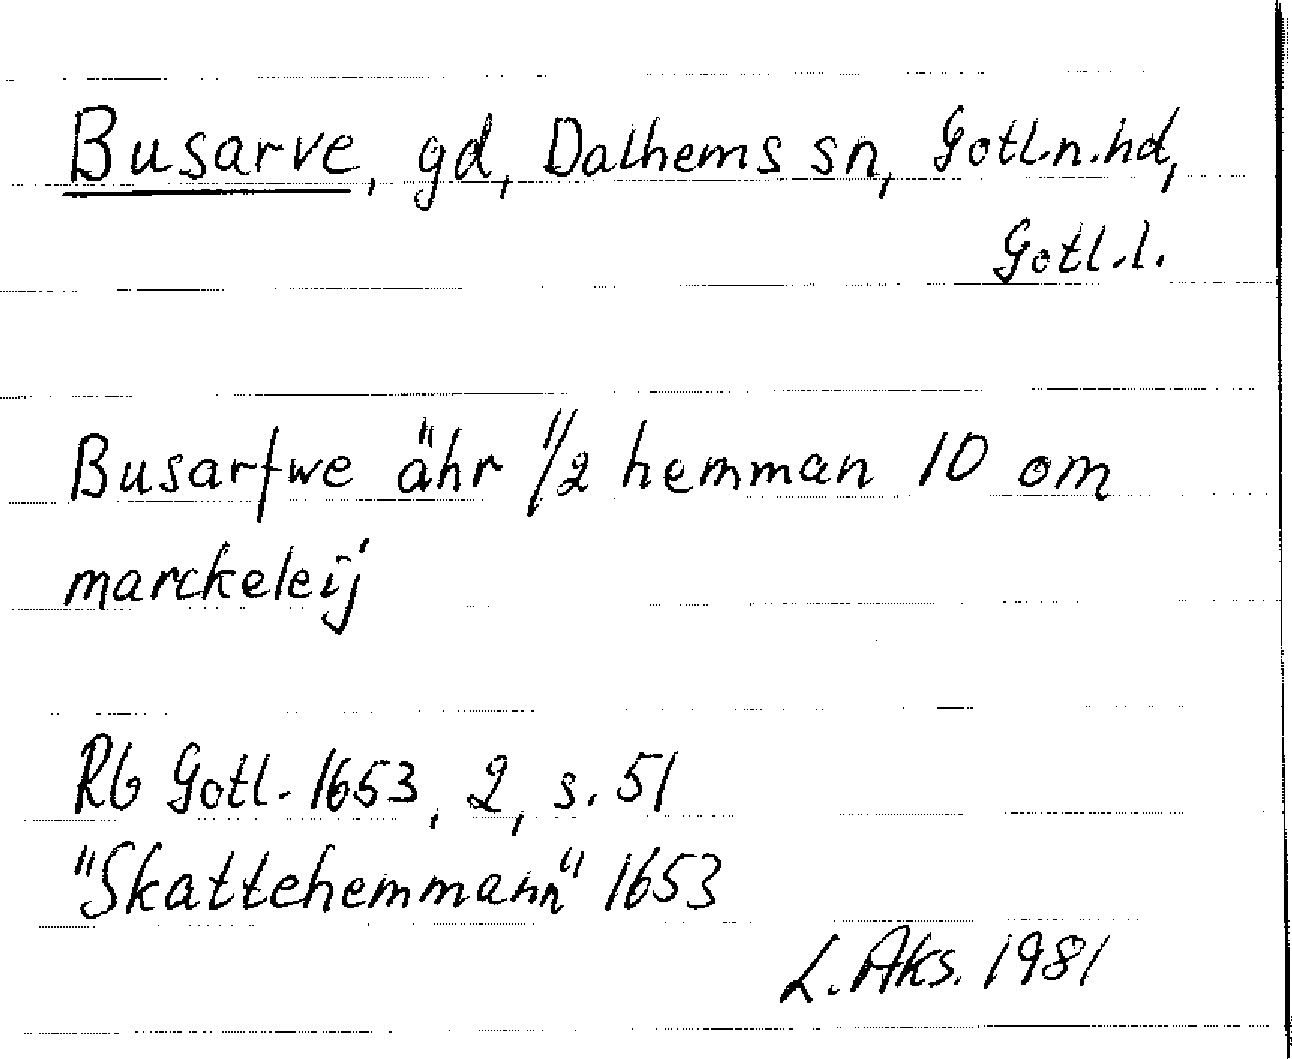 Busarve, gd, Dalhems sn, Gotl.n.hd,
Gotl.l.
Busarfwe ähr 1/2 hemman 10 om
marckeleij
Rb Gotl. 1653, 2, s. 51
"Skattehemmann" 1653
L. Aks. 1981